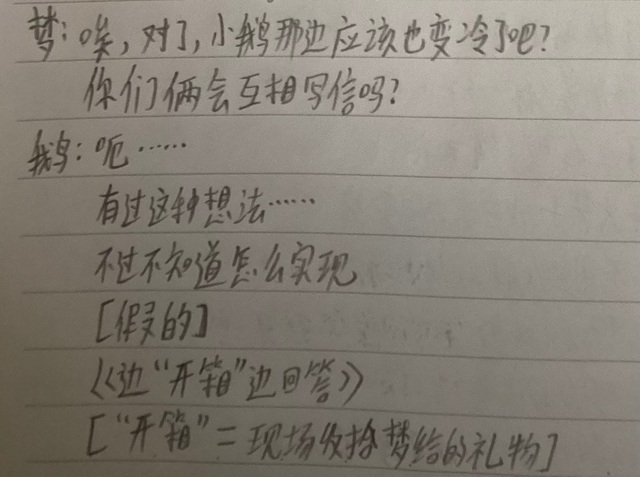 梦：唉，对了，小鹅那边应该也变冷了吧？
你们俩会互相写信吗？
鹅：呃……
有过这种想法……
不过不知道怎么实现
[假的]
《边“开箱”边回答》
[“开箱”=现场收拾梦给的礼物]